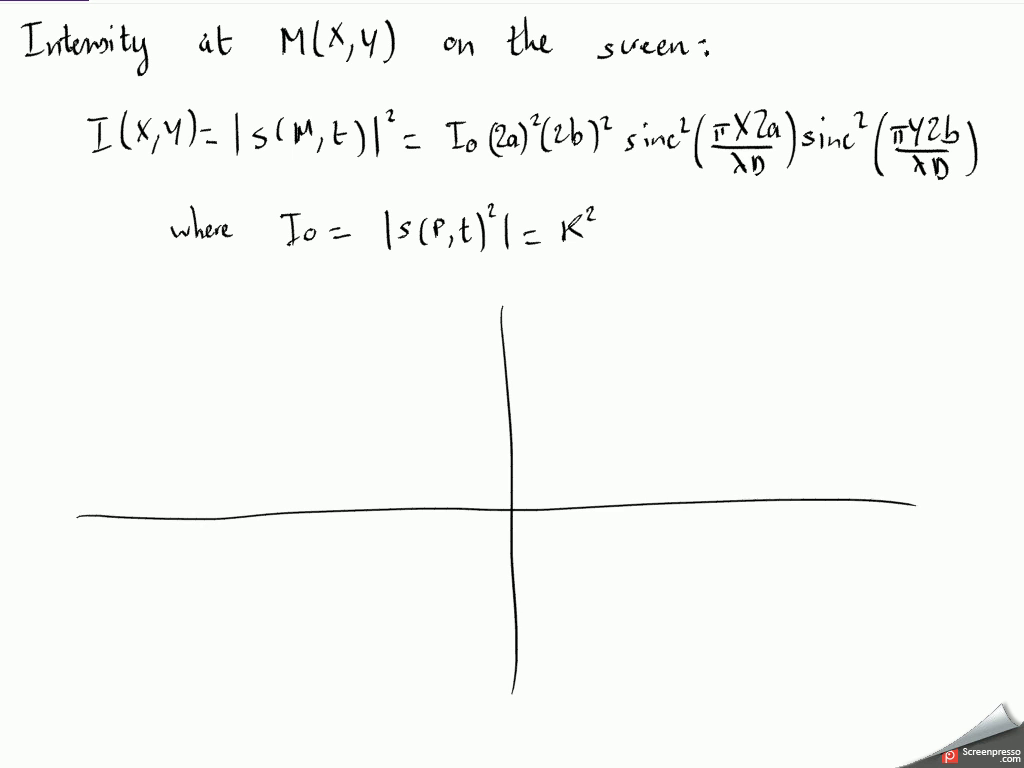 Intensity at M(X,Y) on the screen:
I(X,Y)= |s(M,t)|² = I₀ (2a)²(2b)² sinc²(πX2a/λD) sinc²(πY2b/λD)
where I₀ = |s(P,t)²| = K²
Screenpresso
.com